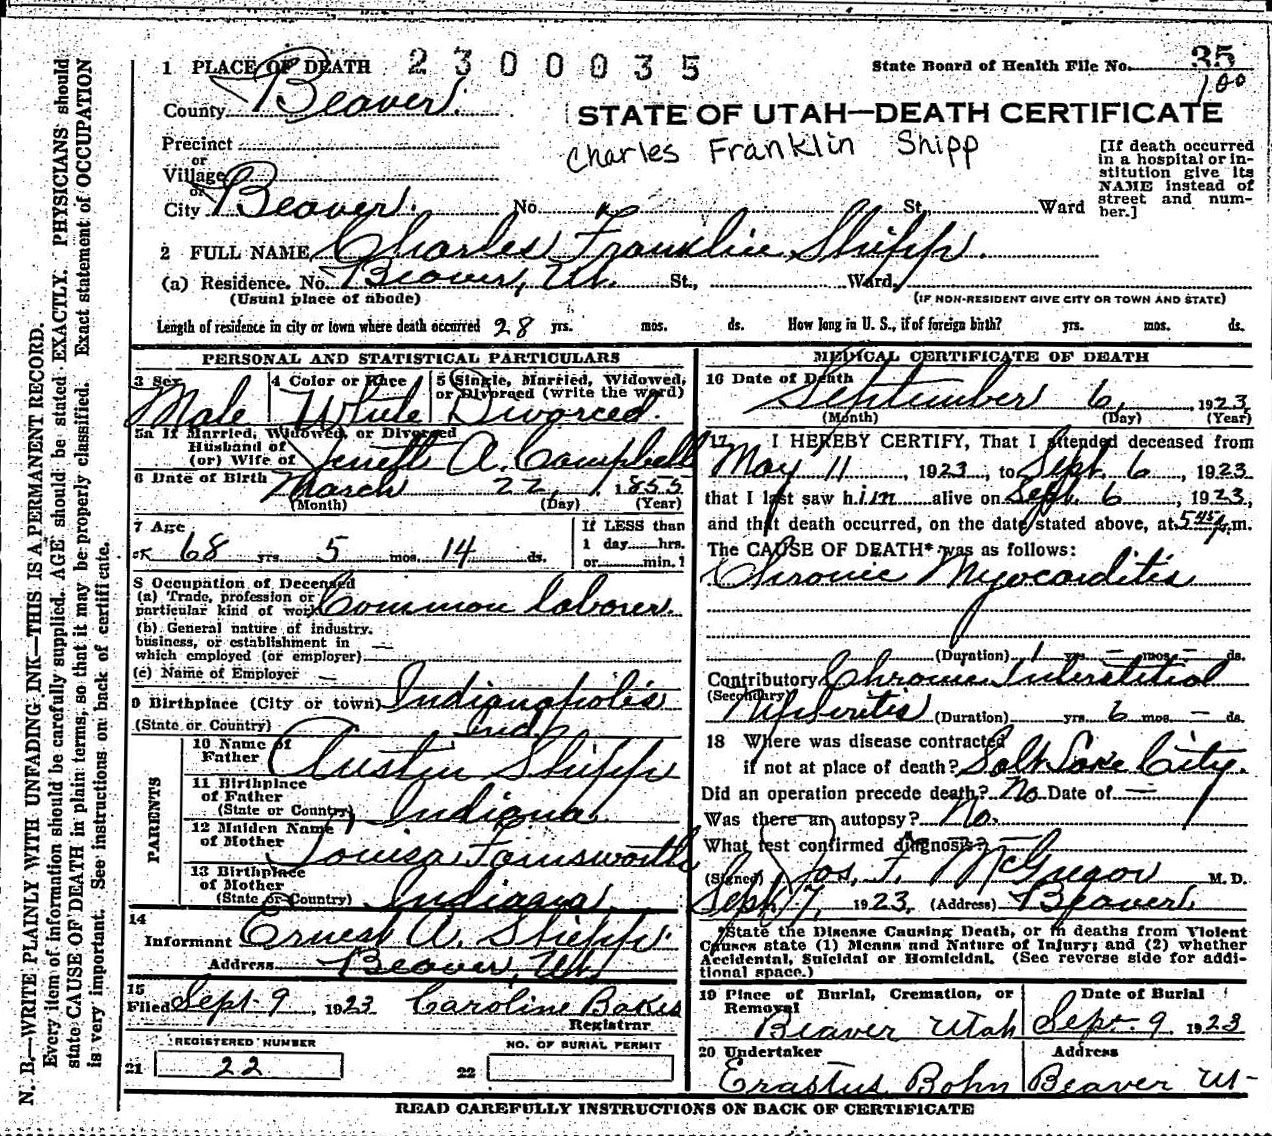 1 PLACE OF DEATH 2300035 State Board of Health File No. 35
100
County Beaver.
STATE OF UTAH—DEATH CERTIFICATE
Charles Franklin Shipp
Precinct
or
Village
or
City Beaver. No. St. Ward
[If death occurred
in a hospital or in-
stitution give its
NAME instead of
street and num-
ber.]
2 FULL NAME Charles Franklin Shipp.
(a) Residence. No. Beaver, Ut. St., Ward,
(Usual place of abode) (IF NON-RESIDENT GIVE CITY OR TOWN AND STATE)
Length of residence in city or town where death occurred 28 yrs. mos. ds. How long in U. S., if of foreign birth? yrs. mos. ds.
PERSONAL AND STATISTICAL PARTICULARS
3 Sex 4 Color or Race 5 Single, Married, Widowed,
or Divorced (write the word)
Male White Divorced.
5a If Married, Widowed, or Divorced
Husband of
(or) Wife of A. Campbell
6 Date of Birth March 22, 1855
(Month) (Day) (Year)
7 Age If LESS than
1 day hrs.
or min.
68 yrs 5 mos. 14 ds.
8 Occupation of Deceased
(a) Trade, profession or
particular kind of work Common laborer
(b) General nature of industry.
business, or establishment in
which employed (or employer) —
(c) Name of Employer —
9 Birthplace (City or town) Indianapolis
(State or Country) Ind.
PARENTS
10 Name of
Father Austin Shipp
11 Birthplace
of Father
(State or Country) Indiana.
12 Maiden Name
of Mother Louisa Farnsworth
13 Birthplace
of Mother
(State or Country) Indiana.
14
Informant Ernest A. Shipp.
Address Beaver, Ut.
15
Filed Sept. 9, 1923 Caroline Bakes
Registrar
REGISTERED NUMBER NO. OF BURIAL PERMIT
21 22 22
MEDICAL CERTIFICATE OF DEATH
16 Date of Death
September 6, 1923
(Month) (Day) (Year)
17 I HEREBY CERTIFY, That I attended deceased from
May 11, 1923, to Sept. 6, 1923
that I last saw him alive on Sept. 6, 1923,
and that death occurred, on the date stated above, at 5 45 p. m.
The CAUSE OF DEATH* was as follows:
Chronic Myocarditis
(Duration) 1 yrs — mos — ds.
Contributory Chronic Interstitial
(Secondary)
Nephritis (Duration) yrs. 6 mos. — ds.
18 Where was disease contracted
if not at place of death? Salt Lake City.
Did an operation precede death? No Date of —
Was there an autopsy? No.
What test confirmed diagnosis? —
(Signed) Jos. F. McGregor M. D.
Sept. 7, 1923, (Address) Beaver.
*State the Disease Causing Death, or in deaths from Violent
Causes state (1) Means and Nature of Injury; and (2) whether
Accidental, Suicidal or Homicidal. (See reverse side for addi-
tional space.)
19 Place of Burial, Cremation, or Date of Burial
Removal
Beaver Utah Sept. 9 1923
20 Undertaker Address
Erastus Bohn Beaver Ut-
READ CAREFULLY INSTRUCTIONS ON BACK OF CERTIFICATE
N. B.—WRITE PLAINLY WITH UNFADING INK—THIS IS A PERMANENT RECORD.
Every item of information should be carefully supplied. AGE should be stated EXACTLY. PHYSICIANS should
state CAUSE OF DEATH in plain terms, so that it may be properly classified. Exact statement of OCCUPATION
is very important. See instructions on back of certificate.